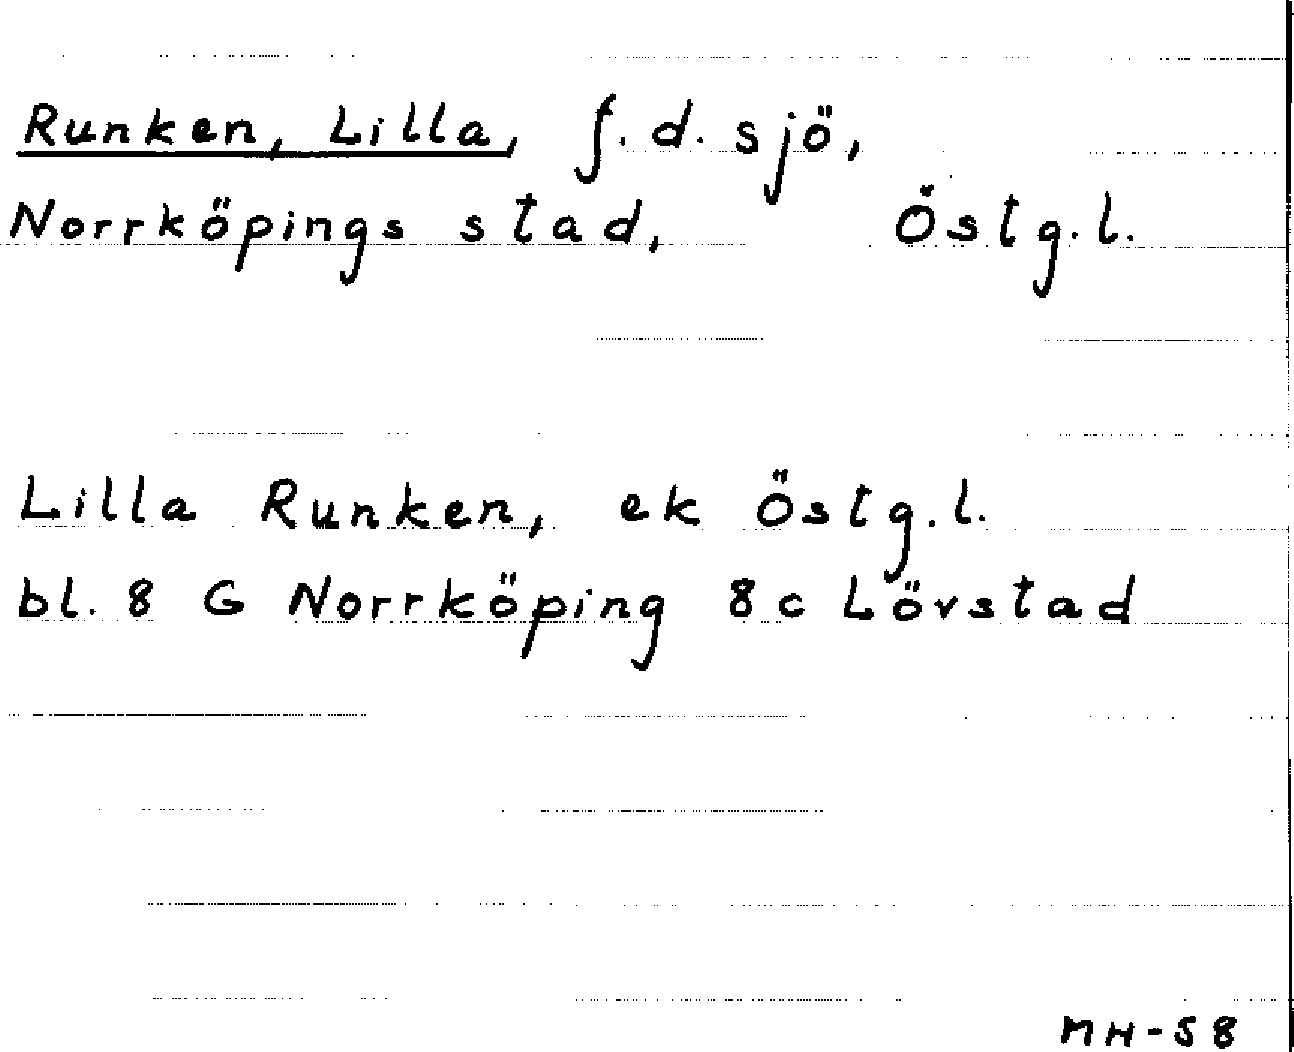 Runken, Lilla, f.d. sjö,
Norrköpings stad, Östg.l.
Lilla Runken, ek Östg.l.
bl. 8 G Norrköping 8c Lövstad
MH-58